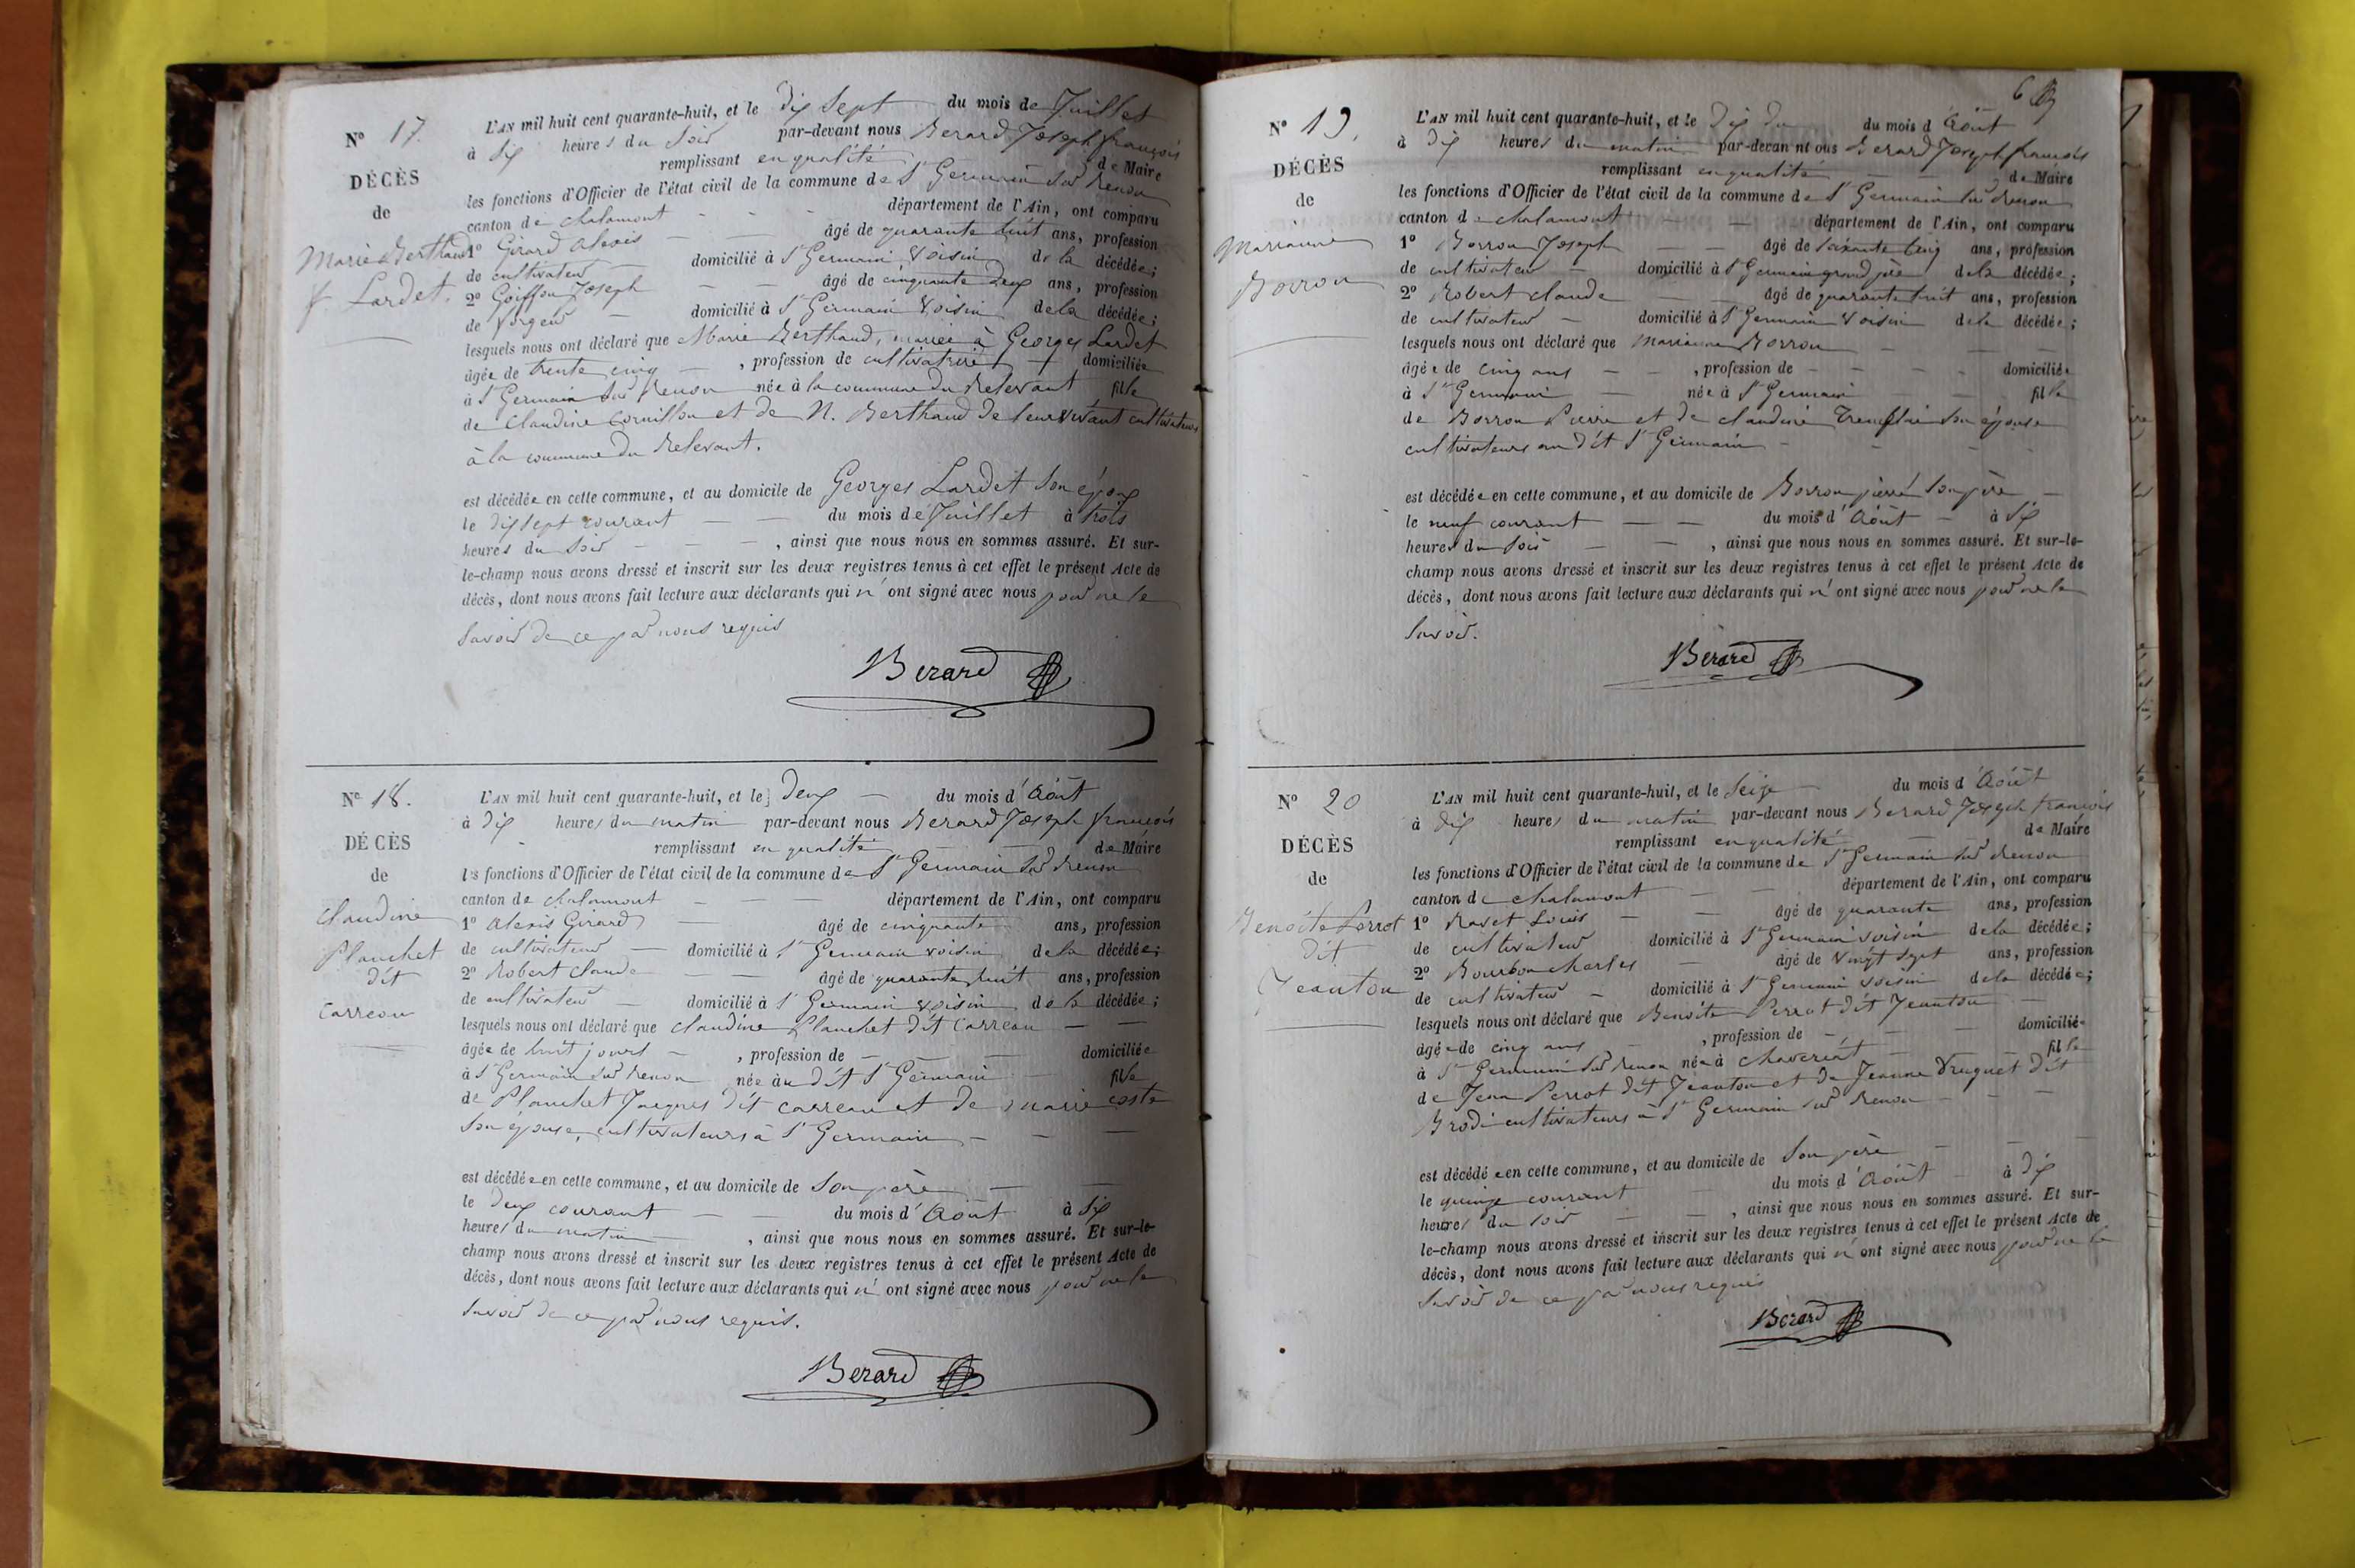 N° 17.
DÉCÈS
de
Marie Berthaud
f. Lardet.
L'AN mil huit cent quarante-huit, et le dix sept du mois de Juillet
à six heures du soir par-devant nous Berard Joseph françois
remplissant en qualité de Maire
les fonctions d'Officier de l'état civil de la commune de St Germain sur Renon
canton de chalamont département de l'Ain, ont comparu
1° Girard Alexis âgé de quarante huit ans, profession
de cultivateur domicilié à St Germain voisin de la décédée;
2° Goiffon Joseph âgé de cinquante deux ans, profession
de domicilié à St Germain voisin de la décédée;
lesquels nous ont déclaré que Marie Berthaud, mariée à Georges Lardet
âgée de trente cinq , profession de cultivatrice domiciliée
à St Germain sur Renon née à la commune du Relevant fille
de Claudine Cornillon et de N. Berthaud de leur vivant cultivateurs
à la commune du Relevant.
est décédée en cette commune, et au domicile de Georges Lardet son époux
le dix sept courant du mois de Juillet à trois
heures du soir , ainsi que nous nous en sommes assuré. Et sur-
le-champ nous avons dressé et inscrit sur les deux registres tenus à cet effet le présent Acte de
décès, dont nous avons fait lecture aux déclarants qui n' ont signé avec nous pour ne le
savoir de ce par nous requis
Berard
N° 18.
DÉCÈS
de
Claudine
Planchet
dit
Carreau
L'AN mil huit cent quarante-huit, et le deux du mois d'Août
à dix heures du matin par-devant nous Berard Joseph françois
remplissant en qualité de Maire
les fonctions d'Officier de l'état civil de la commune de St Germain sur Renon
canton de chalamont département de l'Ain, ont comparu
1° Alexis Girard âgé de cinquante ans, profession
de cultivateur domicilié à St Germain voisin de la décédée;
2° Robert Claude âgé de quarante huit ans, profession
de cultivateur domicilié à St Germain voisin de la décédée;
lesquels nous ont déclaré que claudine Planchet dit Carreau
âgée de huit jours , profession de domiciliée
à St Germain sur Renon née au dit St Germain fille
de Planchet Jacques dit carreau et de marie coste
son épouse, cultivateurs à St Germain
est décédée en cette commune, et au domicile de son père
le deux courant du mois d'Août à six
heures du matin , ainsi que nous nous en sommes assuré. Et sur-le-
champ nous avons dressé et inscrit sur les deux registres tenus à cet effet le présent Acte de
décès, dont nous avons fait lecture aux déclarants qui n' ont signé avec nous pour ne le
savoir de ce par nous requis.
Berard
6
N° 19.
DÉCÈS
de
Marianne
Borron
L'AN mil huit cent quarante-huit, et le dix du du mois d'Août
à dix heures du matin par-devan nt ous Berard Joseph françois
remplissant en qualité de Maire
les fonctions d'Officier de l'état civil de la commune de St Germain sur Renon
canton de chalamont département de l'Ain, ont comparu
1° Borron Joseph âgé de soixante cinq ans, profession
de cultivateur domicilié à St Germain grand père de la décédée;
2° Robert claude âgé de quarante huit ans, profession
de cultivateur domicilié à St Germain voisin de la décédée;
lesquels nous ont déclaré que Marianne Borron
âgée de cinq ans , profession de domiciliée
à St Germain née à St Germain fille
de Borron Pierre et de claudine son épouse
cultivateurs au dit St Germain
est décédée en cette commune, et au domicile de Borron pierre son père
le neuf courant du mois d'Août à six
heures du soir , ainsi que nous nous en sommes assuré. Et sur-le-
champ nous avons dressé et inscrit sur les deux registres tenus à cet effet le présent Acte de
décès, dont nous avons fait lecture aux déclarants qui n' ont signé avec nous pour ne le
savoir.
Berard
N° 20
DÉCÈS
de
Benoîte Perrot
dit
Jeanton
L'AN mil huit cent quarante-huit, et le seize du mois d'Août
à dix heures du matin par-devant nous Berard Joseph françois
remplissant en qualité de Maire
les fonctions d'Officier de l'état civil de la commune de St Germain sur Renon
canton de chalamont département de l'Ain, ont comparu
1° Ravet Louis âgé de quarante ans, profession
de cultivateur domicilié à St Germain voisin de la décédée;
2° Bourbon charles âgé de vingt sept ans, profession
de cultivateur domicilié à St Germain voisin de la décédée;
lesquels nous ont déclaré que Benoîte Perrot dit Jeanton
âgée de cinq ans , profession de domiciliée
à St Germain sur Renon née à chaveriat fille
de Jean Perrot dit Jeanton et de Jeanne dit
Brodi cultivateurs à St Germain sur Renon
est décédée en cette commune, et au domicile de son père
le quinze courant du mois d'Août à dix
heures du soir , ainsi que nous nous en sommes assuré. Et sur-
le-champ nous avons dressé et inscrit sur les deux registres tenus à cet effet le présent Acte de
décès, dont nous avons fait lecture aux déclarants qui n' ont signé avec nous pour ne le
savoir de ce par nous requis
Berard